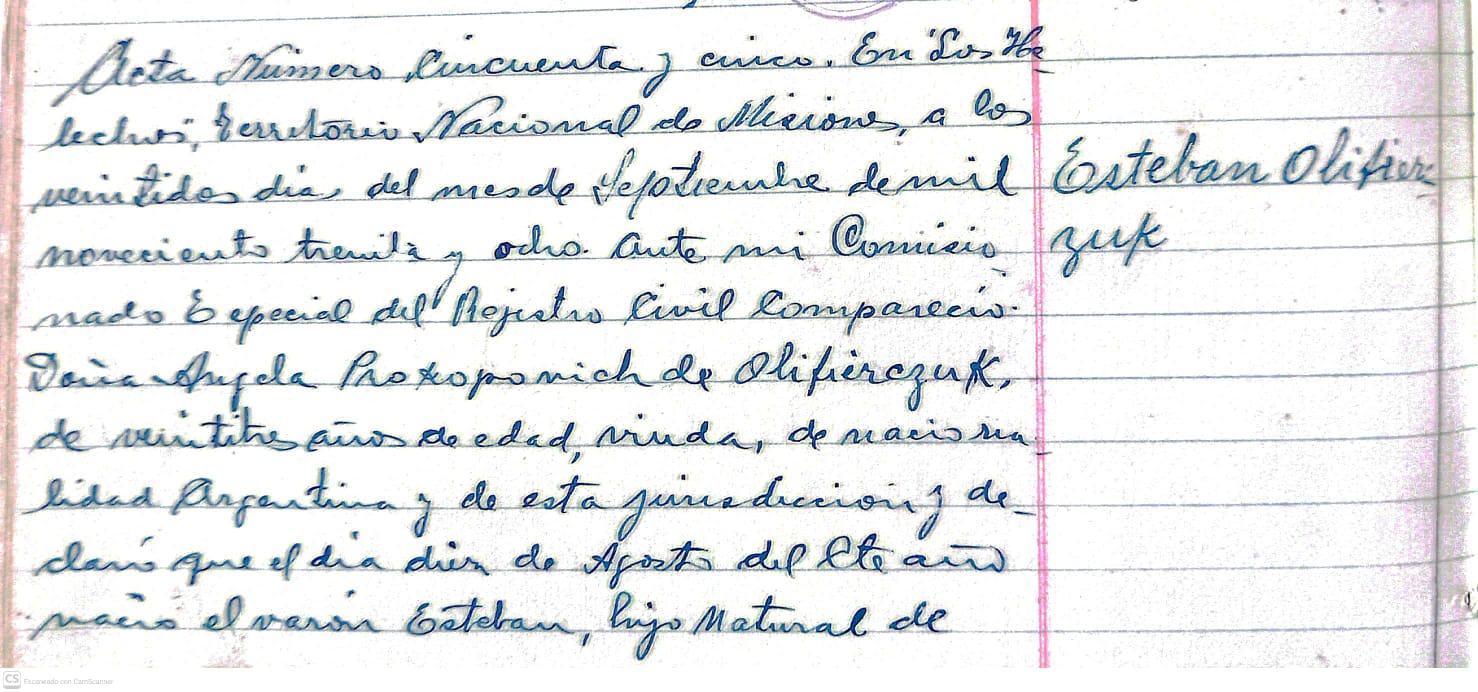 Acta Número Cincuenta y cinco. En Los He-
lechos, Territorio Nacional de Misiones, a los
veintidos dias del mes de Septiembre de mil
noveciento treinta y ocho. Ante mi Comisio-
nado Especial del Rejistro Civil Compareció.
Doña Angela Proxoponich de Olifierczuk,
de veintitres años de edad, viuda, de naciona-
lidad Argentina y de esta jurisdiccion y de-
claró que el dia diez de Agosto del Cte año
nació el varón Esteban, hijo Natural de
Esteban Olifier-
zuk
CS Escaneado con CamScanner